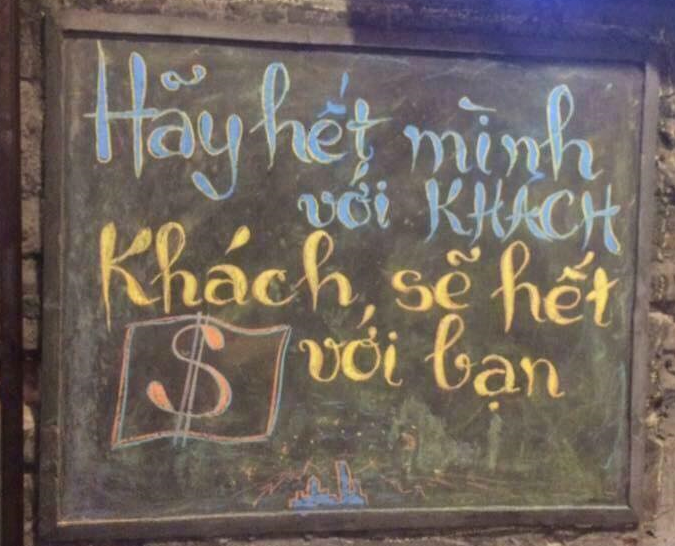 Hãy hết mình
với KHÁCH
Khách, sẽ hết
$ với bạn